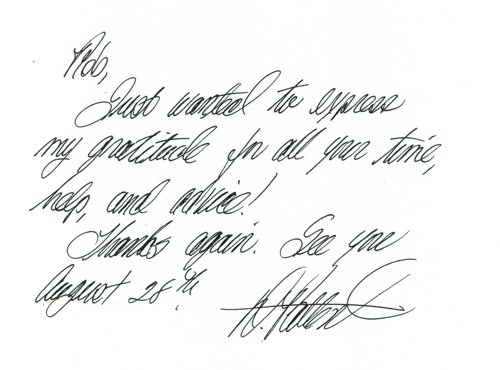 Just wanted to express
my gratitude for all your time,
help, and advice!
Thanks again. See you
August 28th.